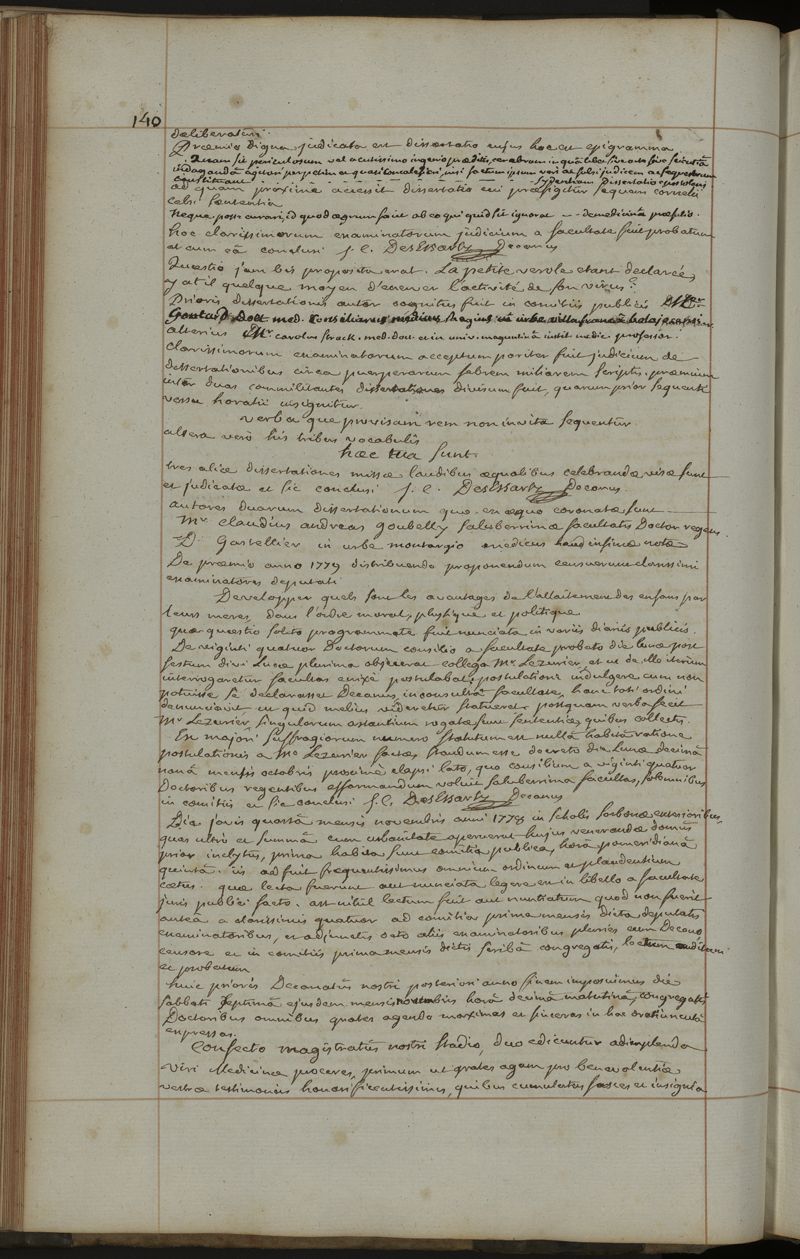 140
deliberaturi.
Praemio digna judicata est dissertatio cujus hoc est epigramma
Quam sit periculosum vel acutissimo ingenio praeditis, cerebrum in quâ
indagandâ
constituant. Sydenham Dissertatio epistolaris
ad quam proximè accessit dissertatio cui praefigitur sequens cornelii
celsi sententia
Neque posse curari, id quod aegrum facit ab eo qui quid sit ignorat -- de medicinâ praefatio.
hoc clarissimorum examinatorum judicium a facultate fuit probatum
et cum eâ conclusi J. C. DesEssartz Decanus
Quaestio jam bis proposita erat. La petite verole etant declarée,
y at il quelque moyen d'enerver l'activité de son virus?
Prioris dissertationis autor cognitus fuit in comitiis publicis Mer
Gontard Doct. med. Consiliarius medicus Regius in urbe villafrancâ
alterius Mr carolus Strack. med. doct. et in univ. moguntinâ instit. medic. professor.
clarissimorum examinatorum acceptum pariter fuit judicium de
dissertationibus circa puerperarum febrem miliarem scriptis. praemium
inter duas commilitantes dissertationes divisum fuit, quarum prior sequente
versu horatii insignitur
verba que provisam rem non invita sequentur
altera verò his tribus vocabulis
haec tua sunt.
tres aliae dissertationes missae laudibus aequalibus celebrandae visae sunt
et judicatae et sic conclusi J. C. DesEssartz Decanus.
autores duarum dissertationum quae ex aequo coronatae sunt
Mr. claudius andreas goubelly saluberrimae facultatis Doctor regens.
D. Gastellier in urbe montargio medicus haud infimae notae
De praemio anno 1779 distribuendo proponendum censuerunt clarissimi
examinatores deputati
Developper quels sont les avantages de l'allaitement des enfans par
leurs meres, dans l'ordre moral, phisique et politique
quae quaestio solito programmate fuit nunciata in variis diariis publicis.
De viginti quatuor Doctorum consilio a facultate probato die lunae post
festum divi Lucae plurima objecerat collega Mr. Lezurier, et ut de illo iterum
interrogaretur facultas enixè postulabat; postulationi indulgere cum non
potuisse se declarasset Decanus, inconsultâ facultate, hanc toti ordini
denunciavit ut quid melius videretur statueret. postquam verba fecit
Mr Lezurier, singulorum astantium rogatae sunt sententiae, quibus collectis.
Ex majori suffragiorum numero statutum est nullâ habitâ ratione
postulationis a Mro Lezurier factae, standum esse decreto die Lunae decimâ
nonâ mensis octobris proximè elapsi lato, quo consilium a viginti quatuor
Doctoribus regentibus efformandum voluit saluberrima facultas, solemnibus
in comitiis et sic conclusi J. C. DesEssartz Decanus
Die jovis quartâ mensis novembris anni 1778 in scholis sorbonae exterioribus,
quas ultrò et summâ cum urbanitate aperuerat hujus venerandae domûs
prior inclytus, prima habita sunt comitia publica, horâ pomeridianâ
quintâ. iis adfuit frequentissimus omnium ordinum et plaudentium
caetus. quae lecta fuerunt aut nunciata legere est in libello a facultate
juris publici facto. ast nihil lectum fuit aut nuntiatum quod non fuerit
anteà a clarissimis quatuor ad comitia prima mensis dicta deputatis
examinatoribus, et adjunctis octo aliis examinatoribus pluries cum Decano
censore et in comitiis prima mensis dictis scribâ congregatis, lectum auditum
et probatum
huic prioris Decanatûs nostri posteriori anno finem imposuimus die
sabbati septimâ ejusdem mensis novembris horâ decimâ matutinâ, congregatis
Doctoribus omnibus grates agendo maximas et sinceras in hac oratiunculâ
expressas.
Confecto magistratûs nostri stadio, duo edicuntur adimplenda
Viri Medicinae proceres, primum ut grates agam pro benevolentiae
vestrae testimoniis honorificentissimis, quibus cumulatus fasces et insignia